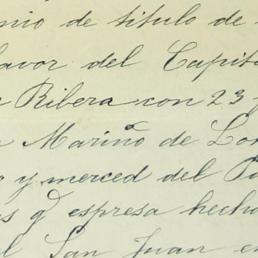 nio de titulo de
favor del Capit
Ribera con 23
Mariño de Lo
y merced del
q espresa hecha
San Juan e